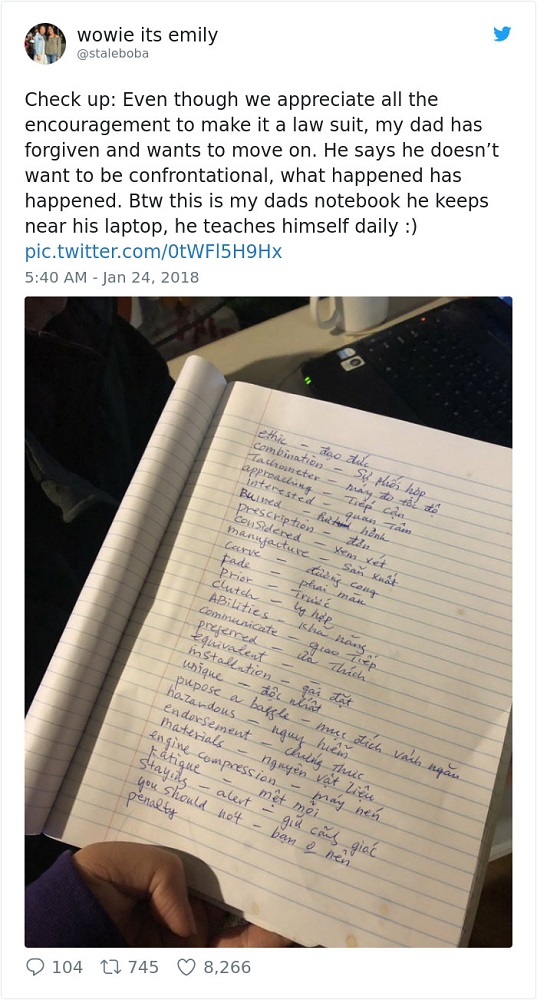 wowie its emily
@staleboba
Check up: Even though we appreciate all the
encouragement to make it a law suit, my dad has
forgiven and wants to move on. He says he doesn’t
want to be confrontational, what happened has
happened. Btw this is my dads notebook he keeps
near his laptop, he teaches himself daily :)
pic.twitter.com/0tWFl5H9Hx
5:40 AM - Jan 24, 2018
ethic – đạo đức
combination – Sự phối hợp
Tachometer – máy đo tốc độ
approaching – Tiếp cận
interested – quan Tâm
Buined – hành
prescription – đơn
considered – xem xét
manufacture – Sản xuất
curve – đường cong
fade – phai màu
prior – Trước
clutch – ly hợp
ABilities – khả năng
communicate – giao Tiếp
preferred – ưa Thích
equivalent –
installation – gài đặt
unique – độc nhất
pupose a baffle – mục đích vách ngăn
hazardous – nguy hiểm
endorsement – chứng Thực
materials – nguyên vật liệu
engine compression – máy nén
Fatigue – mệt mỏi
Staying – alert – giữ cảnh giác
you should not – bạn nên
penalty
104 745 8,266